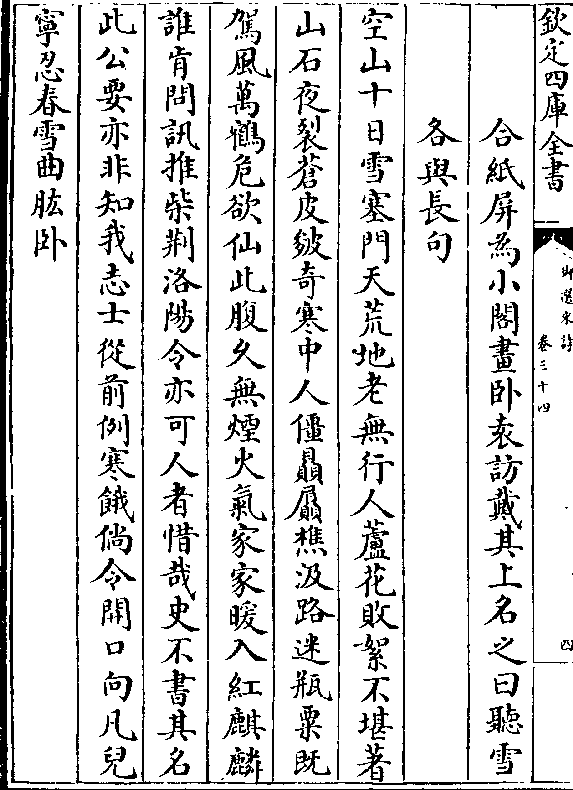 欽定四庫全書
御選宋詩
卷三十四
四
合紙屏為小閣畫卧袁訪戴其上名之曰聽雪
各與長句
空山十日雪塞門天荒地老無行人蘆花敗絮不堪著
山石夜裂蒼皮皴奇寒中人僵贔屭樵汲路迷瓶粟既
駕風萬鶴危欲仙此腹久無煙火氣家家暖入紅麒麟
誰肯問訊推柴荆洛陽令亦可人者惜哉史不書其名
此公要亦非知我志士從前例寒餓倘令開口向凡兒
寧忍春雪曲肱卧